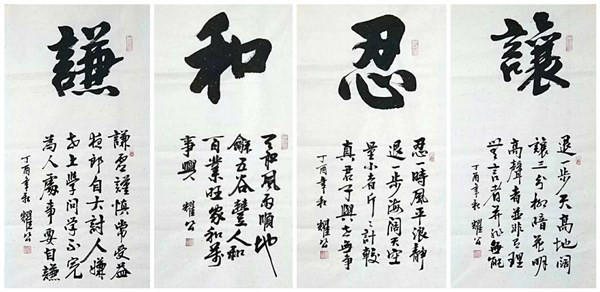 謙
謙虛謹慎常受益
夜郎自大討人嫌
世上學問學不完
為人處事要自謙
丁酉年秋 耀公
和
天和風雨順地
龢五谷豐人和
百業旺家和萬
事興
耀公
忍
忍一時風平浪靜
退一步海闊天空
量小者斤斤計較
真君子與世無爭
丁酉年秋 耀公
讓
退一步天高地闊
讓三分柳暗花明
高聲者並非理
無言者并非無能
丁酉年秋 耀公